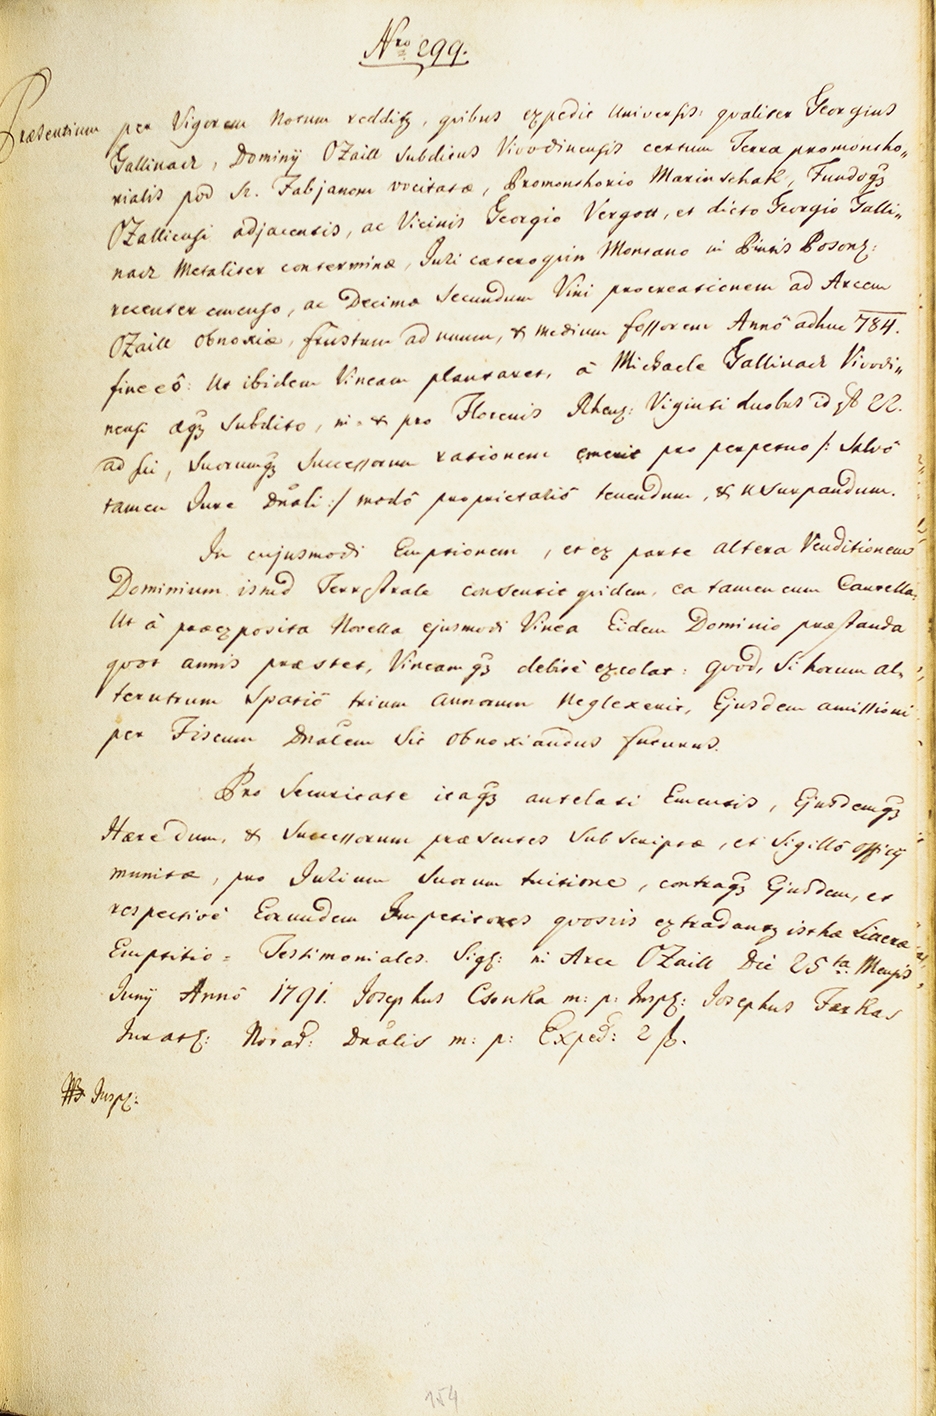 Nro 299.
Præsentium per Vigorem Notum redditq, quibus expedit Universis: qvaliter Georgius
Gallinacz, Dominÿ OZaill Subditus Vivodinensis certum Terræ promontho„
rialis pod St. Fabjanom vocitatæ, Promonthorio Marinschak, Fundoqz
OZalliensi adjacentis, ac Vicinis Georgio Vergott, et dicto Georgio Galli„
nacz Metaliter conterminæ, Juri cæteroquin Montano in Pintis Posonz:
recenter emenso, ac Decimæ Secundum Vini procreationem ad Arcem
OZaill Obnoxiæ, frustum ad unum, & medium fossorem Annô adhuc 784.
fine eô: Ut ibidem Vineam plantaret, â Michaele Gallinacz Vivodi„
nensi æqz Subdito, in & pro Florenis Rhenz: Viginti duobus id est 22.
ad sui, Suorumqz Successorum rationem emerit pro perpetuo /: Salvô
tamen Jure Dnali :/ modô proprietatis tenendum, & Usurpandum.
In cujusmodi Emptionem, et ex parte altera Venditionem
Dominium istud Terrestrale consentit quidem, ea tamen cum Cautella:
Ut â præexposita Novella ejusmodi Vinea Eidem Dominio præstanda
qvot annis præstet, Vineamqz debitè excolat: qvod, Si horum al„
terutrum Spatiô trium annorum Neglexerit, Ejusdem amissioni
per Fiscum Dnalem Sit Obnoxiandus futurus.
Pro Securitate itaqz antelati Emensis, Ejusdemqz
Hæredum, & Successorum præsentes Subscriptæ, et Sigillô Officÿ
munitæ, pro Jurium Suorum tuitione, contraqz Ejusdem, et
respectivè Eorundem Impetitores qvosvis extradantq isthæ Literæ
Emptitio = Testimoniales. Sigl: in Arce OZaill Die 25ta Mensis
Junÿ Annô 1791. Josephus Csonka m: p: Insp: Josephus Farkas
Jurat: Notad: Dnalis m: p: Exped: 2 f.
Insp:
154